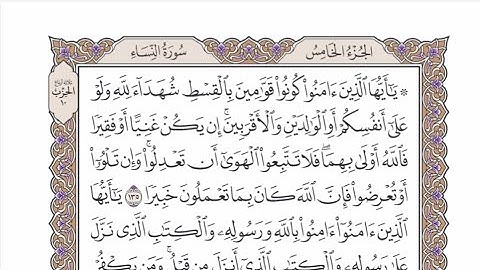 سُورَةُ النِّسَاءِ الجُزْءُ الخَامِسُ
ثلاثة أرباع الحِزْبِ ١٠
۞ يَٰٓأَيُّهَا ٱلَّذِينَ ءَامَنُوا۟ كُونُوا۟ قَوَّٰمِينَ بِٱلْقِسْطِ شُهَدَآءَ لِلَّهِ وَلَوْ
عَلَىٰٓ أَنفُسِكُمْ أَوِ ٱلْوَٰلِدَيْنِ وَٱلْأَقْرَبِينَ ۚ إِن يَكُنْ غَنِيًّا أَوْ فَقِيرًا
فَٱللَّهُ أَوْلَىٰ بِهِمَا ۖ فَلَا تَتَّبِعُوا۟ ٱلْهَوَىٰٓ أَن تَعْدِلُوا۟ ۚ وَإِن تَلْوُۥٓا۟
أَوْ تُعْرِضُوا۟ فَإِنَّ ٱللَّهَ كَانَ بِمَا تَعْمَلُونَ خَبِيرًا ١٣٥ يَٰٓأَيُّهَا
ٱلَّذِينَ ءَامَنُوٓا۟ ءَامِنُوا۟ بِٱللَّهِ وَرَسُولِهِۦ وَٱلْكِتَٰبِ ٱلَّذِى نَزَّلَ
عَلَىٰ رَسُولِهِۦ وَٱلْكِتَٰبِ ٱلَّذِىٓ أَنزَلَ مِن قَبْلُ ۚ وَمَن يَكْفُرْ